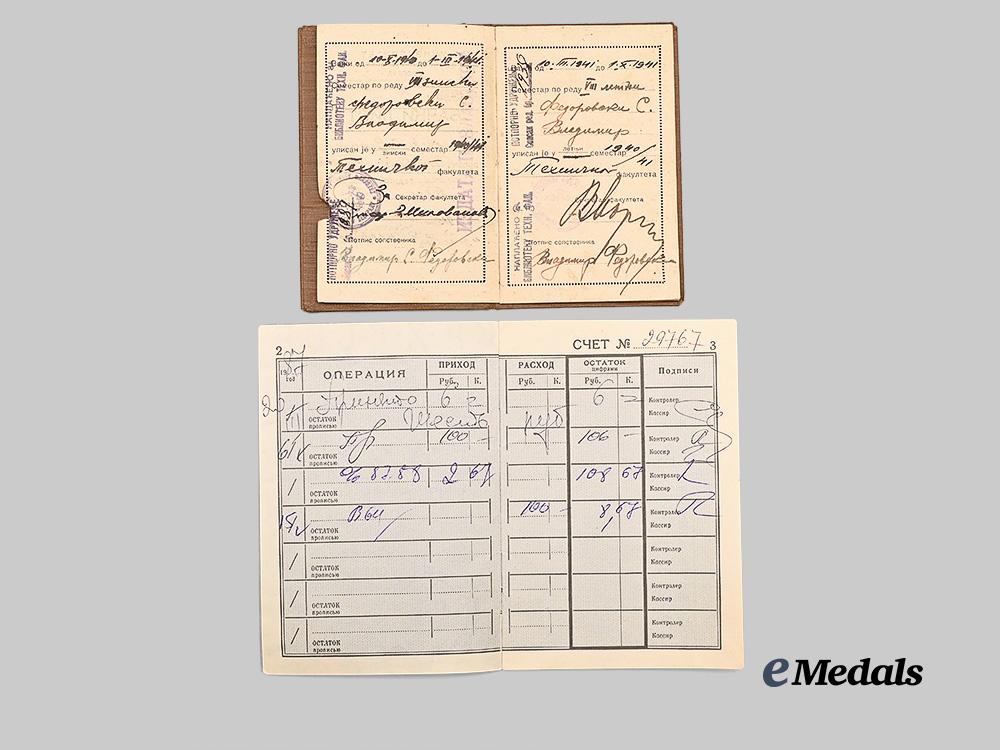 од 10-X-1940 до 1-III-1941.
семестар по реду VII зимски
Федоровски С.
Владимир
уписан је у зимски семестар 1940/41
Техничког факултета
Секретар факултета
Потпис сопственика
Владимир С. Федоровски
НАПЛАЋЕНО ЗА
БИБЛИОТЕКУ ТЕХН. ФАК.
од 10.III.1941 до 1.X.1941
семестар по реду VIII летњи
Федоровски С.
Владимир
уписан је у летњи семестар 1940/41
Техничког факултета
факултета
Потпис сопственика
Владимир Федоровски
НАПЛАЋЕНО ЗА
БИБЛИОТЕКУ ТЕХН. ФАК.
2
СЧЕТ № 29767 3
19 87 год ОПЕРАЦИЯ ПРИХОД РАСХОД ОСТАТОК цифрами Подписи
Руб. К. Руб. К. Руб. К.
Принято 6 = 6 = Контролер
ОСТАТОК прописью Шесть руб Кассир
Пр 100 - 106 - Контролер
ОСТАТОК прописью Кассир
% 87.88 2 67 108 67 Контролер
ОСТАТОК прописью Кассир
Выд 100 - 8,67 Контролер
ОСТАТОК прописью Кассир
Контролер
ОСТАТОК прописью Кассир
Контролер
ОСТАТОК прописью Кассир
Контролер
ОСТАТОК прописью Кассир
eMedals